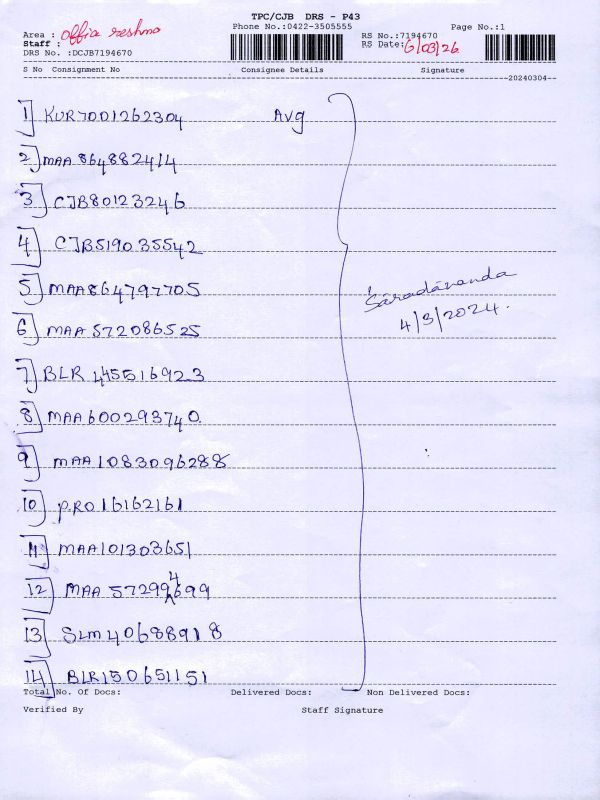 TPC/CJB DRS - P43
Phone No.:0422-3505555 Page No.:1
Area : offia reshma RS No.:7194670
Staff : RS Date: 6/03/26
DRS No. :DCJB7194670
S No Consignment No Consignee Details Signature
20240304
1] KUR7001262304 Avg
2] MAA 864882414
3] CJB80123246
4] CJB519035542
5] MAA864797705
6] MAA 572086525
7] BLR 445516923
8] MAA600293740
9] MAA1083096288
10] PRO16162161
11] MAA101303651
12] MAA 572994699
13] SLM40688918
14] BLR150651151
Saradananda
4/3/2024.
Total No. Of Docs: Delivered Docs: Non Delivered Docs:
Verified By Staff Signature